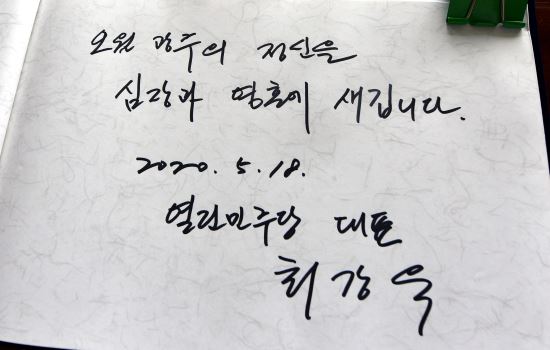 오월 광주의 정신을
심장과 영혼에 새깁니다.
2020. 5. 18.
열린민주당 대표
최강욱